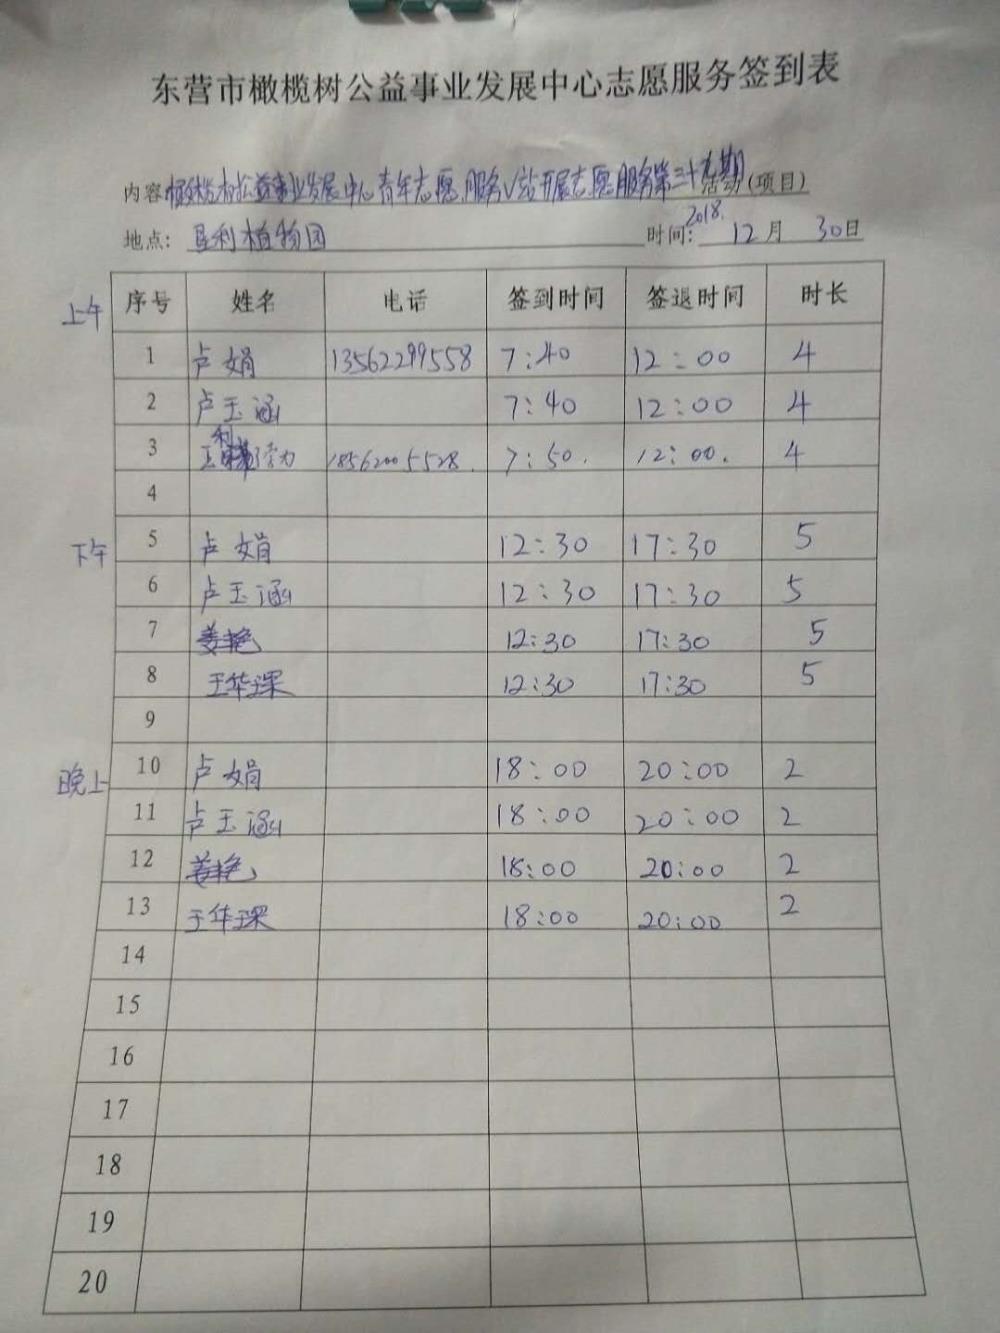 东营市橄榄树公益事业发展中心志愿服务签到表
内容 橄榄树公益事业发展中心青年志愿服务V站开展志愿服务第三十九期 活动(项目)
地点: 垦利植物园 时间: 2018. 12月 30日
上午 序号 姓名 电话 签到时间 签退时间 时长
1 卢娟 13562299558 7:40 12:00 4
2 卢玉涵 7:40 12:00 4
3 18562005528. 7:50. 12:00. 4
4
下午 5 卢娟 12:30 17:30 5
6 卢玉涵 12:30 17:30 5
7 姜艳 12:30 17:30 5
8 王华琛 12:30 17:30 5
9
晚上 10 卢娟 18:00 20:00 2
11 卢玉涵 18:00 20:00 2
12 姜艳 18:00 20:00 2
13 王华琛 18:00 20:00 2
14
15
16
17
18
19
20